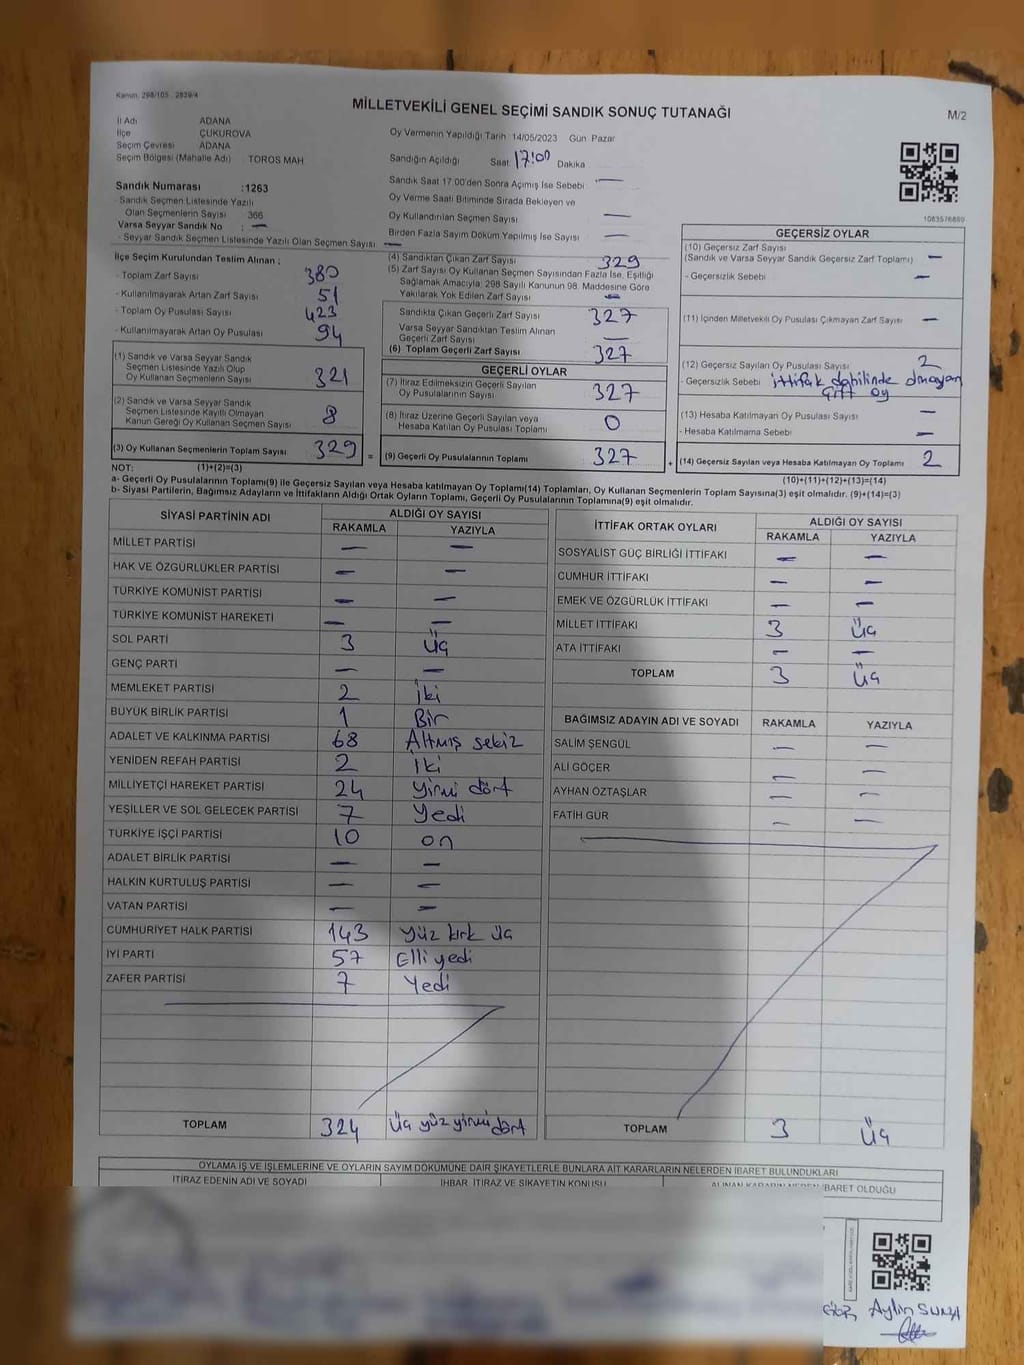 Kanun: 298/105 - 2839/4
MİLLETVEKİLİ GENEL SEÇİMİ SANDIK SONUÇ TUTANAĞI
M/2
İl Adı ADANA
İlçe ÇUKUROVA
Seçim Çevresi ADANA
Seçim Bölgesi (Mahalle Adı) TOROS MAH
Oy Vermenin Yapıldığı Tarih 14/05/2023 Gün Pazar
Sandığın Açıldığı Saat 17:00 Dakika
Sandık Saat 17:00'den Sonra Açımış Ise Sebebi —
Oy Verme Saati Bitiminde Sırada Bekleyen ve
Oy Kullandırılan Seçmen Sayısı —
Birden Fazla Sayım Döküm Yapılmış İse Sayısı —
Sandık Numarası : 1263
- Sandık Seçmen Listesinde Yazılı
Olan Seçmenlerin Sayısı 366
Varsa Seyyar Sandık No : —
- Seyyar Sandık Seçmen Listesinde Yazılı Olan Seçmen Sayısı: —
1083576869
İlçe Seçim Kurulundan Teslim Alınan ;
- Toplam Zarf Sayısı 380
- Kullanılmayarak Artan Zarf Sayısı 51
- Toplam Oy Pusulası Sayısı 423
- Kullanılmayarak Artan Oy Pusulası 94
(1) Sandık ve Varsa Seyyar Sandık
Seçmen Listesinde Yazılı Olup
Oy Kullanan Seçmenlerin Sayısı 321
(2) Sandık ve Varsa Seyyar Sandık
Seçmen Listesinde Kayıtlı Olmayan
Kanun Gereği Oy Kullanan Seçmen Sayısı 8
(3) Oy Kullanan Seçmenlerin Toplam Sayısı 329 =
(4) Sandıktan Çıkan Zarf Sayısı 329
(5) Zarf Sayısı Oy Kullanan Seçmen Sayısından Fazla İse, Eşitliği
Sağlamak Amacıyla; 298 Sayılı Kanunun 98. Maddesine Göre
Yakılarak Yok Edilen Zarf Sayısı —
Sandıkta Çıkan Geçerli Zarf Sayısı 327
Varsa Seyyar Sandıktan Teslim Alınan
Geçerli Zarf Sayısı —
(6) Toplam Geçerli Zarf Sayısı 327
GEÇERLİ OYLAR
(7) İtiraz Edilmeksizin Geçerli Sayılan
Oy Pusulalarının Sayısı 327
(8) İtiraz Üzerine Geçerli Sayılan veya
Hesaba Katılan Oy Pusulası Toplamı 0
(9) Geçerli Oy Pusulalarının Toplamı 327 +
GEÇERSİZ OYLAR
(10) Geçersiz Zarf Sayısı
(Sandık ve Varsa Seyyar Sandık Geçersiz Zarf Toplamı) —
- Geçersizlik Sebebi —
(11) İçinden Milletvekili Oy Pusulası Çıkmayan Zarf Sayısı —
(12) Geçersiz Sayılan Oy Pusulası Sayısı 2
- Geçersizlik Sebebi ittifak dahilinde olmayan
çift oy
(13) Hesaba Katılmayan Oy Pusulası Sayısı —
- Hesaba Katılmama Sebebi —
(14) Geçersiz Sayılan veya Hesaba Katılmayan Oy Toplamı 2
NOT: (1)+(2)=(3)
(10)+(11)+(12)+(13)=(14)
a- Geçerli Oy Pusulalarının Toplamı(9) ile Geçersiz Sayılan veya Hesaba katılmayan Oy Toplamı(14) Toplamları, Oy Kullanan Seçmenlerin Toplam Sayısına(3) eşit olmalıdır. (9)+(14)=(3)
b- Siyasi Partilerin, Bağımsız Adayların ve İttifakların Aldığı Ortak Oyların Toplamı, Geçerli Oy Pusulalarının Toplamına(9) eşit olmalıdır.
SİYASİ PARTİNİN ADI ALDIĞI OY SAYISI
RAKAMLA YAZIYLA
MİLLET PARTİSİ — —
HAK VE ÖZGÜRLÜKLER PARTİSİ — —
TÜRKİYE KOMÜNİST PARTİSİ — —
TÜRKİYE KOMÜNİST HAREKETİ — —
SOL PARTİ 3 Üç
GENÇ PARTİ — —
MEMLEKET PARTİSİ 2 İki
BÜYÜK BİRLİK PARTİSİ 1 Bir
ADALET VE KALKINMA PARTİSİ 68 Altmış sekiz
YENİDEN REFAH PARTİSİ 2 İki
MİLLİYETÇİ HAREKET PARTİSİ 24 yirmi dört
YEŞİLLER VE SOL GELECEK PARTİSİ 7 Yedi
TÜRKİYE İŞÇİ PARTİSİ 10 on
ADALET BİRLİK PARTİSİ — —
HALKIN KURTULUŞ PARTİSİ — —
VATAN PARTİSİ — —
CUMHURİYET HALK PARTİSİ 143 yüz kırk üç
İYİ PARTİ 57 Elli yedi
ZAFER PARTİSİ 7 Yedi
TOPLAM 324 üç yüz yirmi dört
İTTİFAK ORTAK OYLARI ALDIĞI OY SAYISI
RAKAMLA YAZIYLA
SOSYALİST GÜÇ BİRLİĞİ İTTİFAKI — —
CUMHUR İTTİFAKI — —
EMEK VE ÖZGÜRLÜK İTTİFAKI — —
MİLLET İTTİFAKI 3 Üç
ATA İTTİFAKI — —
TOPLAM 3 Üç
BAĞIMSIZ ADAYIN ADI VE SOYADI RAKAMLA YAZIYLA
SALİM ŞENGÜL — —
ALİ GÖÇER — —
AYHAN ÖZTAŞLAR — —
FATİH GÜR — —
TOPLAM 3 Üç
OYLAMA İŞ VE İŞLEMLERİNE VE OYLARIN SAYIM DÖKÜMÜNE DAİR ŞİKAYETLERLE BUNLARA AİT KARARLARIN NELERDEN İBARET BULUNDUKLARI
İTİRAZ EDENİN ADI VE SOYADI İHBAR, İTİRAZ VE ŞİKAYETİN KONUSU ALINAN KARARIN NEDEN İBARET OLDUĞU
Aylin SUNA